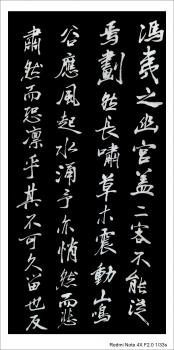 馮夷之幽宮蓋二客不能從
焉劃然長嘯草木震動山鳴
谷應風起水涌予亦悄然而悲
肅然而恐凜乎其不可久留也反
Redmi Note 4X F2.0 1/33s